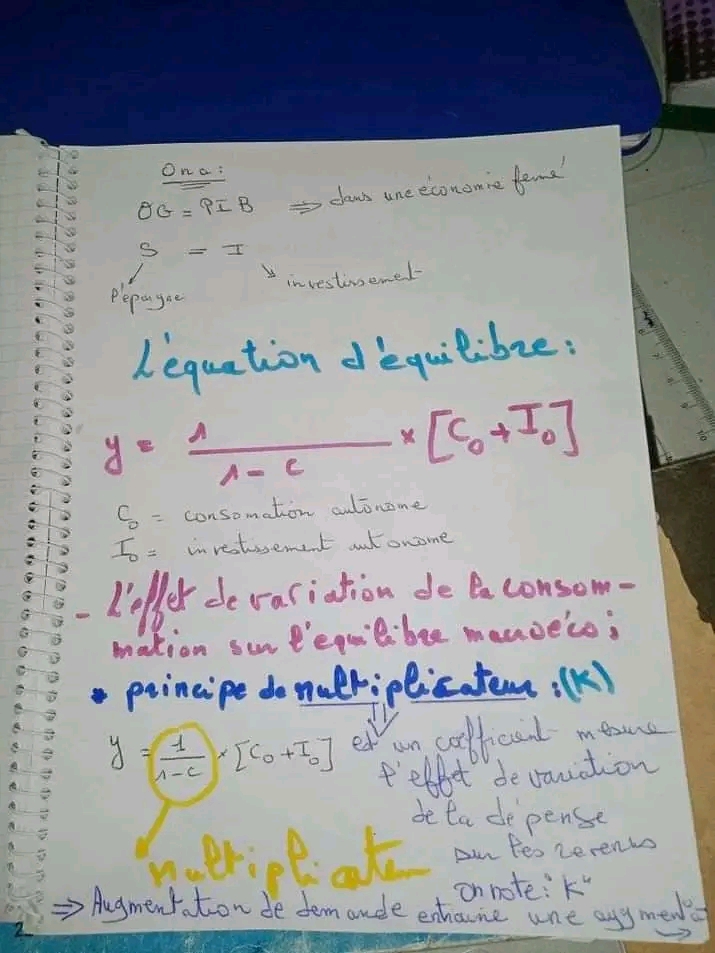 On a :
OG = PIB ⇒ dans une économie fermé
S = I
l'épargne investissement
L'équation d'équilibre :
y = 1 / 1 - c × [C₀ + I₀]
C₀ = consomation autonome
I₀ = investissement autonome
- L'effet de variation de la consom-
mation sur l'équilibre macroéco ;
* principe de multiplicateur : (K)
y = 1 / 1 - c × [C₀ + I₀]
est un coefficient mesure
l'effet de variation
de la dépense
sur les revenus
on note : "K"
multiplicateu
⇒ Augmentation de demande entraine une augment°
2